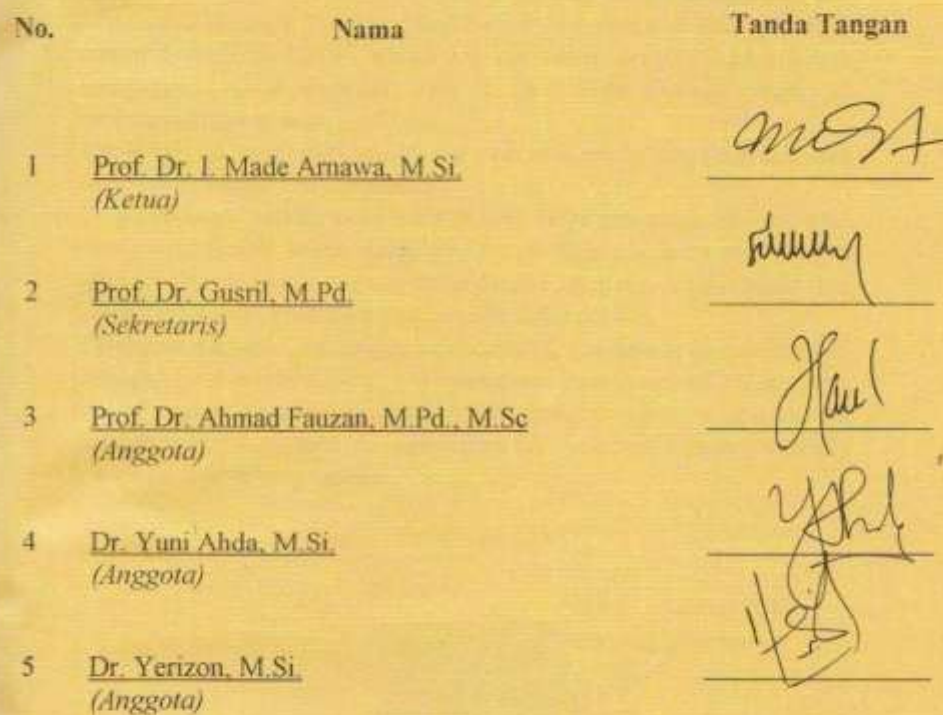 No. Nama Tanda Tangan
1 Prof. Dr. I. Made Arnawa, M.Si.
(Ketua)
2 Prof. Dr. Gusril, M.Pd.
(Sekretaris)
3 Prof. Dr. Ahmad Fauzan, M.Pd., M.Sc
(Anggota)
4 Dr. Yuni Ahda, M.Si.
(Anggota)
5 Dr. Yerizon, M.Si.
(Anggota)